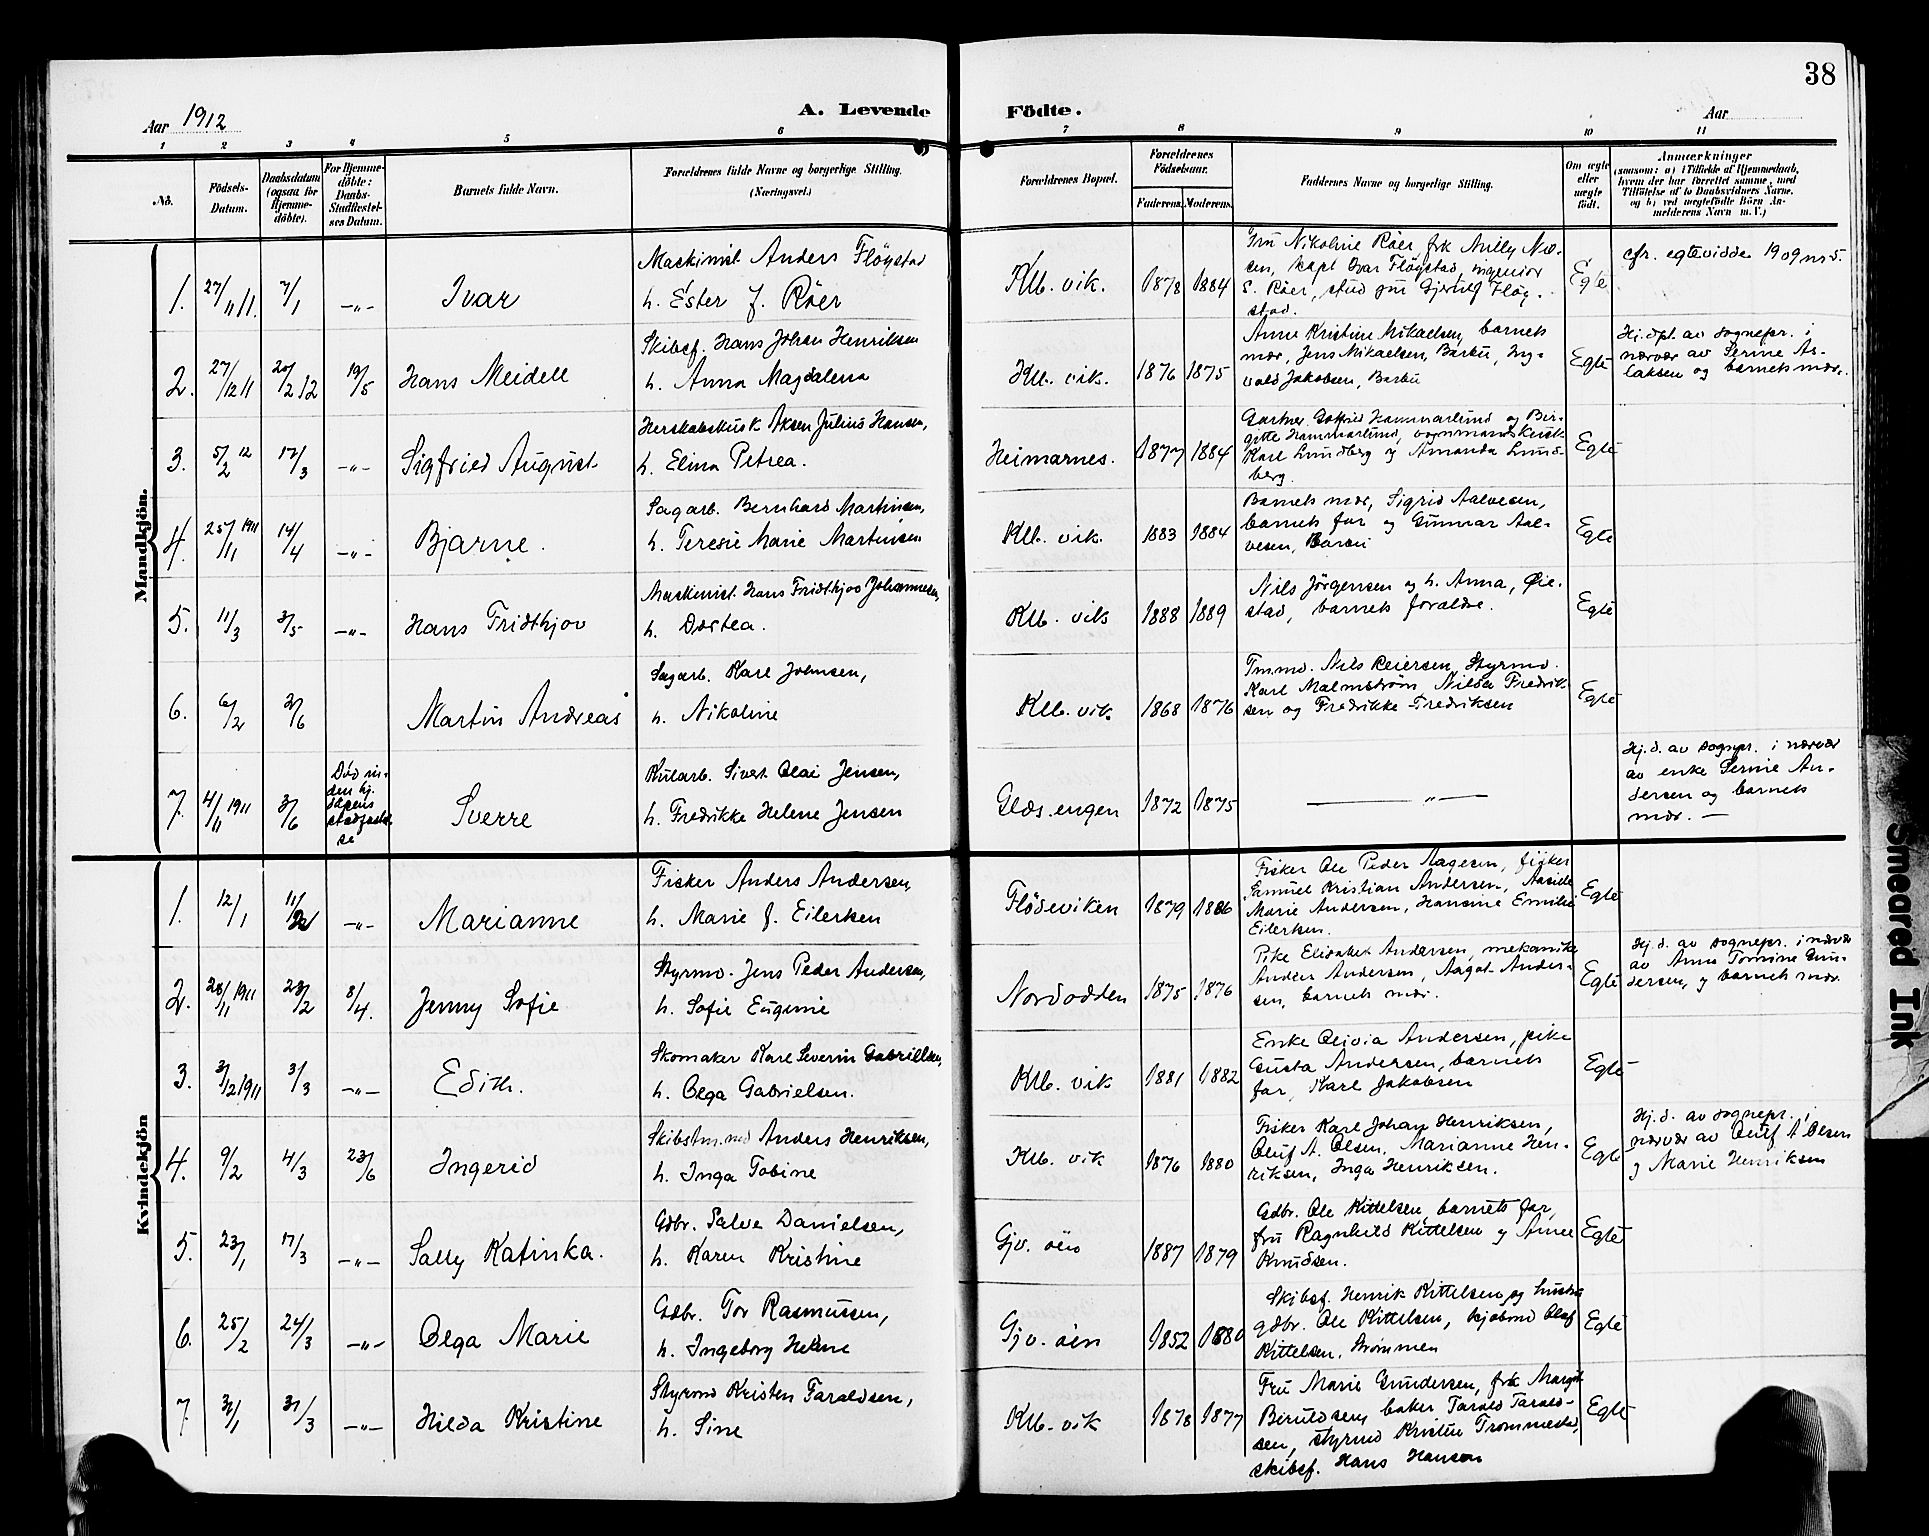 38
Aar 1912
A. Levende Födte.
Aar
1 2 3 4 5 6 7 8 9 10 11
No.
Födsels-Datum.
Daabsdatum (ogsaa for Hjemme-döbte).
For Hjemme-döbte: Daabs Stadfæstel-ses Datum.
Barnets fulde Navn.
Forældrenes fulde Navne og borgerlige Stilling. (Næringsvei.)
Forældrenes Bopæl.
Forældrenes Födselsaar.
Faderens. Moderens.
Faddernes Navne og borgerlige Stilling.
Om ægte eller uægte födt.
Anmærkninger
(saasom: a) i Tilfælde af Hjemmedaab, hvem der har forrettet samme, med Tilföielse af to Daabsvidners Navne, og b) ved uægtefödte Börn An-melderens Navn m. V.)
Mandkjön.
1. 27/11 11. 7/1 -"- Ivar
Maskinist Anders Fløystad
h. Ester f. Röer
Klb. vik. 1878 1884
Fru Nikoline Röer, frk Milly Næ-
sen, kapt Ivar Fløystad, ingeniør
S. Röer, stud jur Gjerulf Fløy-
stad.
Egte
cfr. egtevidde 1909 nr 5.
2. 27/12 11 25/2 12 19/5 Hans Meidell
Skibsf. Hans Johan Henriksen
h. Anna Magdalena
Klb. vik. 1876 1875
Anne Kristine Mikaelsen, barnets
mor, Jens Mikaelsen, Barbu, Ing-
vald Jakobsen, Barbu
Egte
Hj. dpt. av sognepr. i
nærvær av Serine As-
laksen og barnets mor.
3. 5/2 12 17/3 -"- Sigfried August
Herskabskusk Aksen Julius Hansen,
h. Elina Petrea.
Heimarnes. 1877 1884
Gartner Gottfrid Hammarlund og Bir-
gitte Hammarlund,
Karl Lundberg og Amanda Lund-
berg.
Egte
4. 25/11 1911 14/4 -"- Bjarne.
Sagarb. Bernhard Martinsen,
h. Teresie Marie Martinsen
Klb. vik. 1883 1884
Barnets mor, Sigrid Aalvesen,
barnets far og Gunnar Aal-
vesen, Barbu
Egte
5. 11/3 3/5 -"- Hans Fridthjov
Maskinist Hans Fridthjov Johannesen,
h. Dortea.
Klb. vik 1888 1889
Nils Jörgensen og h. Anna, Øie-
stad, barnets forældre.
Egte
6. 6/2 2/6 Martin Andreas
Sagarb. Karl Johnsen,
h. Nikoline
Klb. vik 1868 1876
Tmmd. Nils Reiersen, Styrmd.
Karl Malmström, Nilsa Fredrik-
sen og Fredrikke Fredriksen
Egte
7. 4/11 1911 3/6
Död in-
den hj.
daapens
stadfæstel
se
Sverre
Kularb. Sivert Olai Jensen,
h. Fredrikke Helene Jensen
Glds. engen 1872 1875
— " —
Hj. d. av sognepr. i nærvær
av enke Serine An-
dersen og barnets
mor. —
Kvindekjön
1. 12/1 11/2 -"- Marianne
Fisker Anders Andersen,
h. Marie f. Eilertsen
Flödeviken 1879 1886
Fisker Ole Peder Aagesen, fisker
Samuel Kristian Andersen, Aasille
Marie Andersen, Hansine Emilie
Eilertsen.
Egte
2. 28/11 1911 28/2 8/4. Jenny Sofie
Styrmd. Jens Peder Andersen,
h. Sofie Eugenie
Nordodden 1875 1876
Pike Elisabet Andersen, mekaniker
Anders Andersen, Aagot Ander-
sen, barnets mor.
Egte
Hj. d. av sognepr. i nærvær
av Anne Tomine Gun-
dersen, og barnets mor.
3. 3/12 1911 3/3 -"- Edith.
Skomaker Karl Severin Gabrielsen,
h. Olga Gabrielsen.
Klb. vik 1881 1882
Enke Olivia Andersen, pike
Gusta Andersen, barnets
far, Karl Jakobsen
Egte
4. 9/2 4/3 23/6 Ingerid
Skibstm.md Anders Henriksen,
h. Inga Tobine
Klb. vik 1876 1880
Fisker Karl Johan Henriksen,
Oluf A. Olsen, Marianne Hen-
riksen, Inga Henriksen.
Egte
Hj. d. av sognepr. i
nærvær av Oluf A Olsen
og Marie Henriksen
5. 23/1 17/3 -"- Sally Katinka.
Gdbr. Salve Danielsen,
h. Karen Kristine
Gjv. öen 1887 1879
Gdbr. Ole Kittelsen, barnets far,
fru Ragnhild Kittelsen og Anne
Knudsen.
Egte
6. 25/2 24/3 -"- Olga Marie
Gdbr. Tor Rasmussen,
h. Ingeborg Helene
Gjv. öen 1852 1880
Skibsf. Henrik Kittelsen og hustru
gdbr. Ole Kittelsen, kjöbmd Olaf
Kittelsen, Strömmen
Egte
7. 31/1 31/3 -"- Hilda Kristine
Styrmd Kristen Taraldsen,
h. Sine
Klb. vik 1878 1877
Fru Marie Gundersen, frk Margit
Beruldsen, baker Tarald Tarald-
sen, styrmd Kristen Trommestad,
skibsf. Hans Hanson
Egte
Smeared Ink